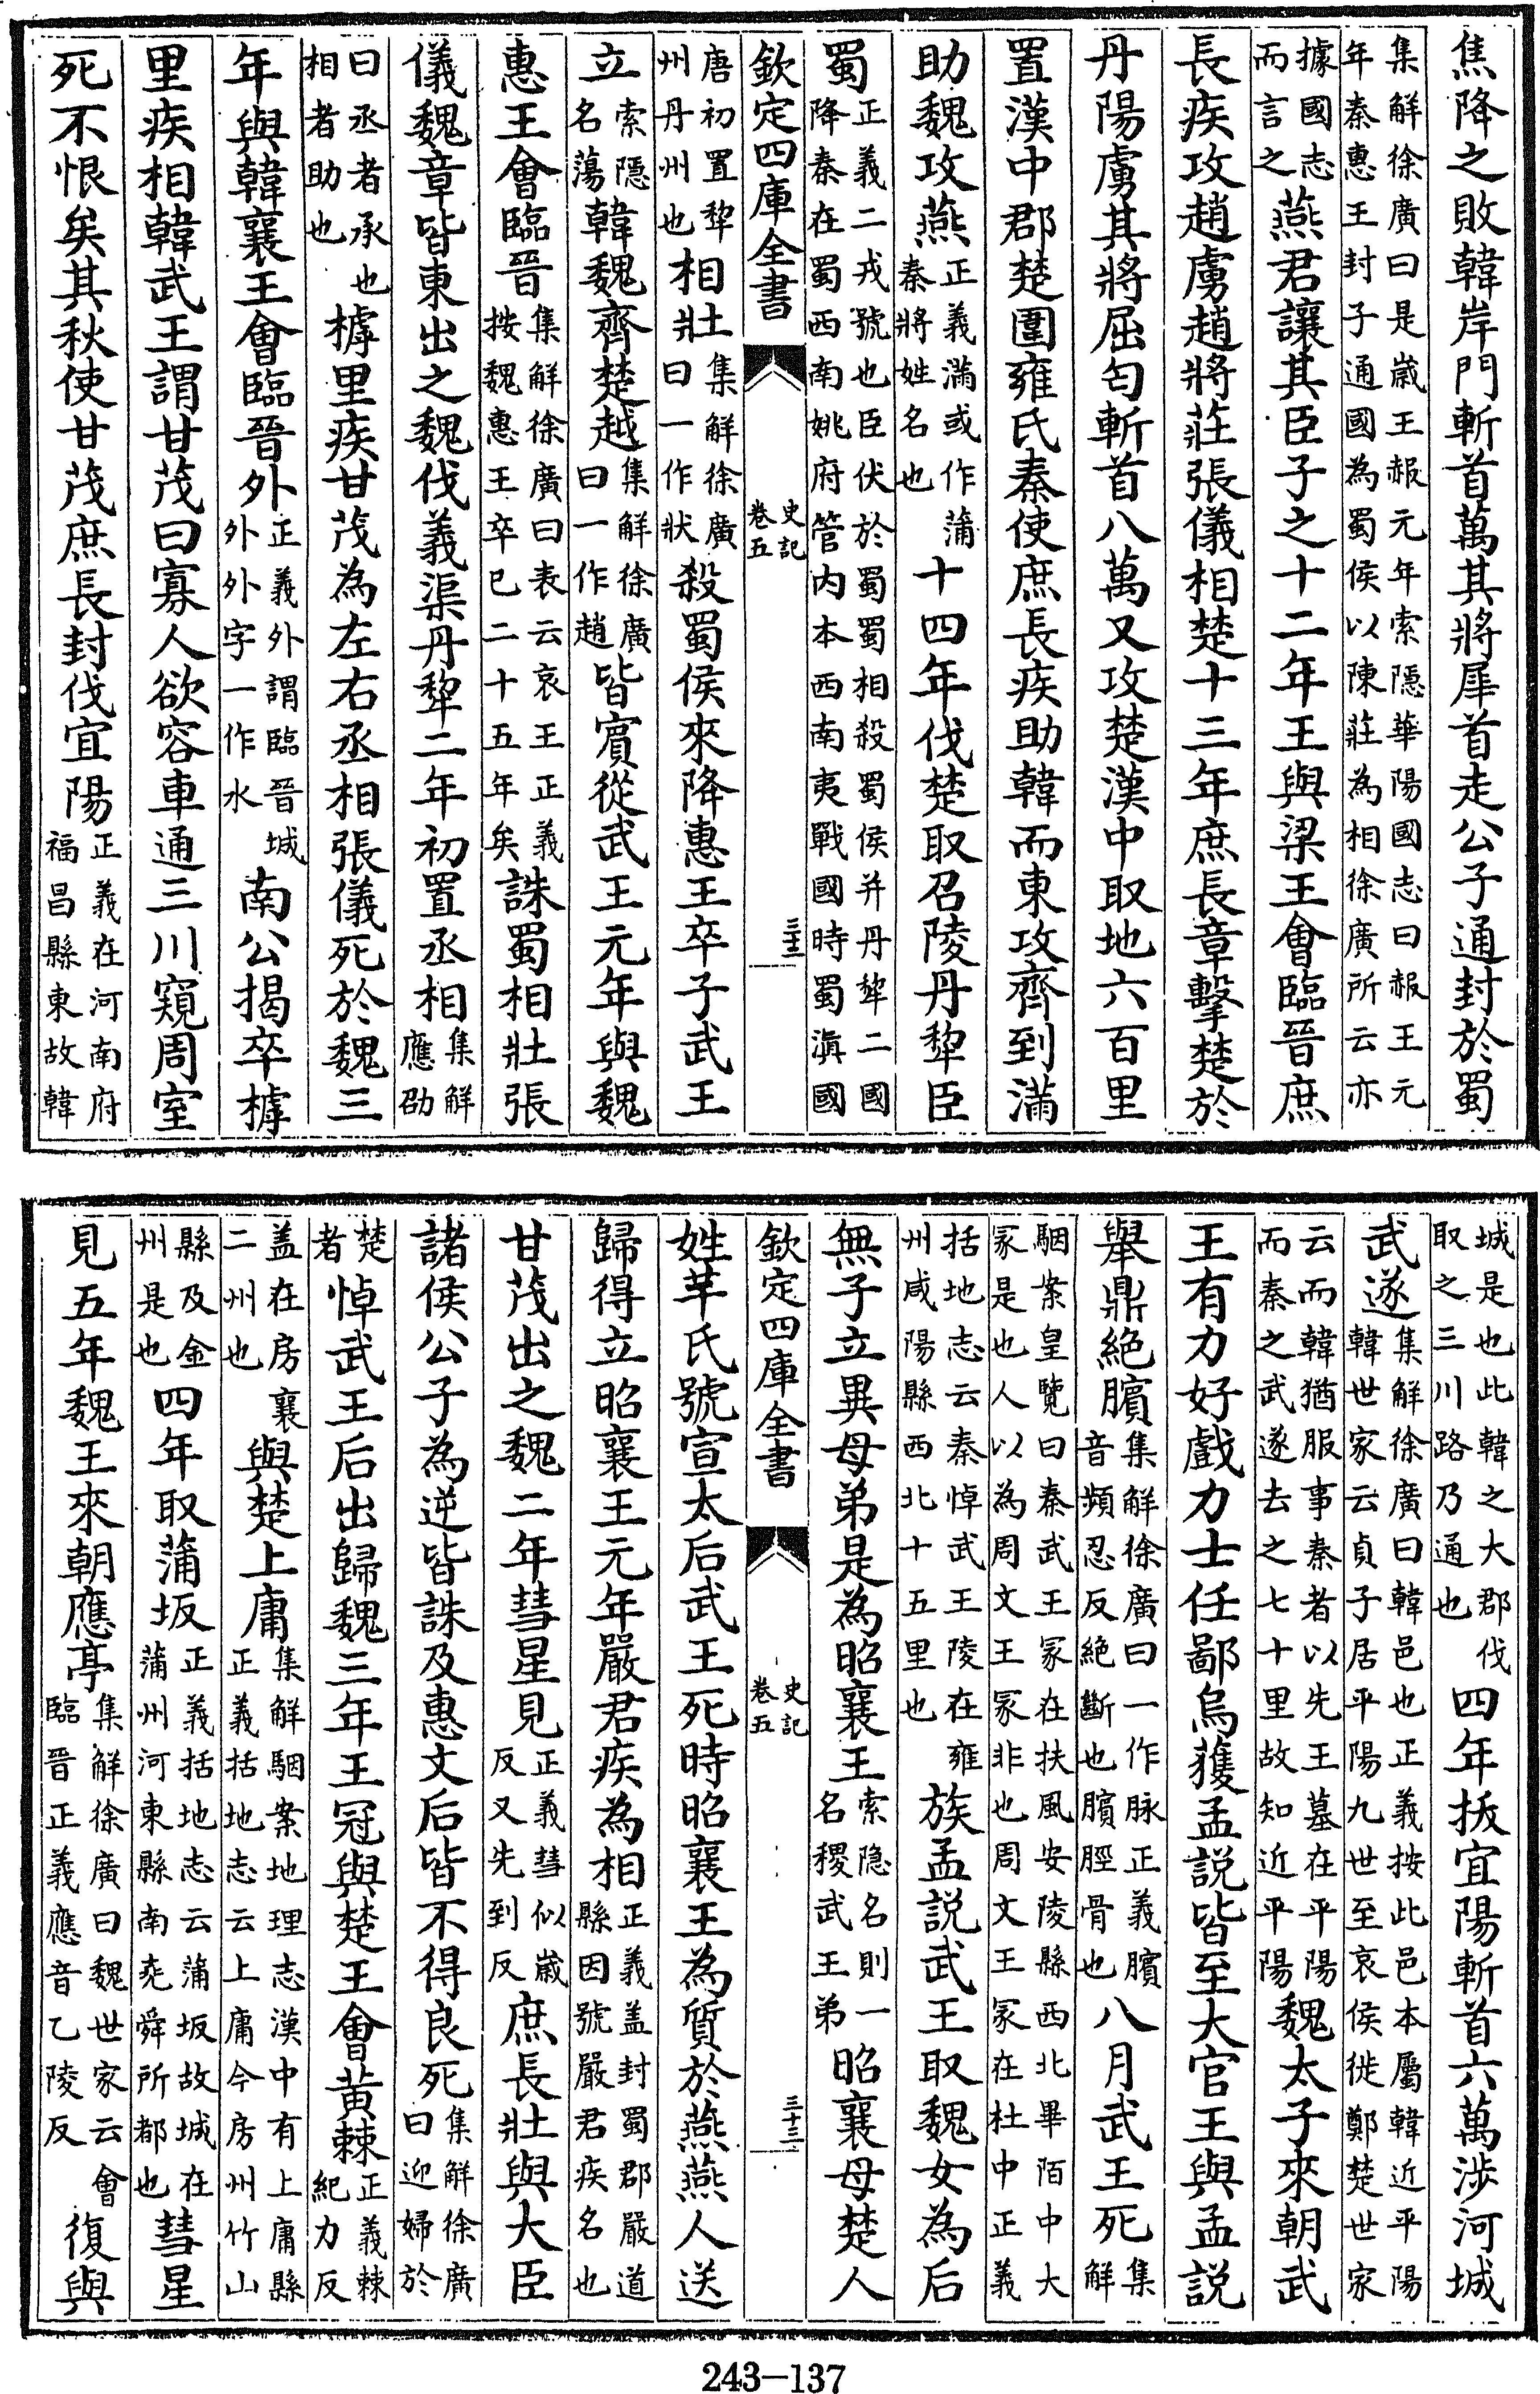 焦降之敗韓岸門斬首萬其將犀首走公子通封於蜀
集解徐廣曰是歲王赧元年索隱華陽國志曰赧王元
年秦惠王封子通國為蜀侯以陳莊為相徐廣所云亦
據國志
而言之
燕君讓其臣子之十二年王與梁王會臨晉庶
長疾攻趙虜趙將莊張儀相楚十三年庶長章擊楚於
丹陽虜其將屈匄斬首八萬又攻楚漢中取地六百里
置漢中郡楚圍雍氏秦使庶長疾助韓而東攻齊到滿
助魏攻燕
正義滿或作蒲
秦將姓名也
十四年伐楚取召陵丹犂臣
蜀
正義二戎號也臣伏於蜀蜀相殺蜀侯并丹犂二國
降秦在蜀西南姚府管内本西南夷戰國時蜀滇國
欽定四庫全書
史記
卷五
三十二
唐初置犂
州丹州也
相壯
集解徐廣
曰一作狀
殺蜀侯來降惠王卒子武王
立
索隱
名蕩
韓魏齊楚越
集解徐廣
曰一作趙
皆賓從武王元年與魏
惠王會臨晉
集解徐廣曰表云哀王正義
按魏惠王卒已二十五年矣
誅蜀相壯張
儀魏章皆東出之魏伐義渠丹犂二年初置丞相
集解
應劭
曰丞者承也
相者助也
樗里疾甘茂為左右丞相張儀死於魏三
年與韓襄王會臨晉外
正義外謂臨晉城
外外字一作水
南公揭卒樗
里疾相韓武王謂甘茂曰寡人欲容車通三川窺周室
死不恨矣其秋使甘茂庶長封伐宜陽
正義在河南府
福昌縣東故韓
城是也此韓之大郡伐
取之三川路乃通也
四年拔宜陽斬首六萬涉河城
武遂
集解徐廣曰韓邑也正義按此邑本屬韓近平陽
韓世家云貞子居平陽九世至哀侯徙鄭楚世家
云而韓猶服事秦者以先王墓在平陽
而秦之武遂去之七十里故知近平陽
魏太子來朝武
王有力好戲力士任鄙烏獲孟說皆至大官王與孟說
舉鼎絕臏
集解徐廣曰一作脉正義臏
音頻忍反絕斷也臏脛骨也
八月武王死
集
解
駰案皇覽曰秦武王冢在扶風安陵縣西北畢陌中大
冢是也人以為周文王冢非也周文王冢在杜中正義
括地志云秦悼武王陵在雍
州咸陽縣西北十五里也
族孟說武王取魏女為后
無子立異母弟是為昭襄王
索隐名則一
名稷武王弟
昭襄母楚人
欽定四庫全書
史記
卷五
三十三
姓芈氏號宣太后武王死時昭襄王為質於燕燕人送
歸得立昭襄王元年嚴君疾為相
正義盖封蜀郡嚴道
縣因號嚴君疾名也
甘茂出之魏二年彗星見
正義彗似歲
反又先到反
庶長壯與大臣
諸侯公子為逆皆誅及惠文后皆不得良死
集解徐廣
曰迎婦於
楚
者
悼武王后出歸魏三年王冠與楚王會黃棘
正義棘
紀力反
盖在房襄
二州也
與楚上庸
集解駰案地理志漢中有上庸縣
正義括地志云上庸今房州竹山
縣及金
州是也
四年取蒲坂
正義括地志云蒲坂故城在
蒲州河東縣南尭舜所都也
彗星
見五年魏王來朝應亭
集解徐廣曰魏世家云會
臨晉正義應音乙陵反
復與
243—137